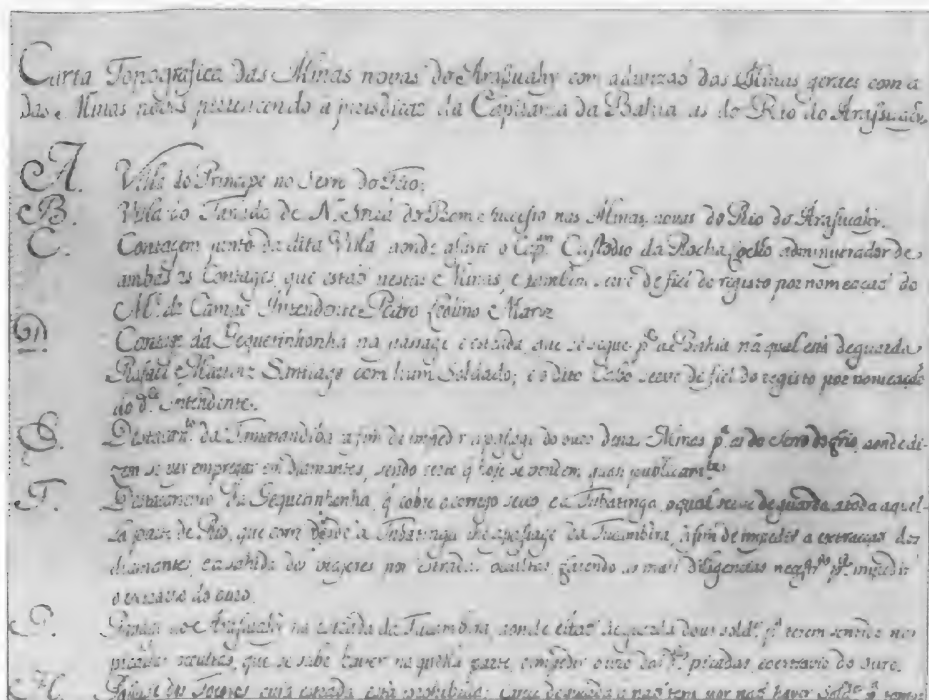 Carta Topografica das Minas novas do Arasuahy com adivizaõ das Minas geraes com a
das Minas novas pertencendo á jurisdicaõ da Capitania da Bahia as do Rio do Arasuahy
A. Villa do Principe no Serro do Frio.
B. Villa do Fanado de N. Snrã do Bom sucesso nas Minas novas do Rio do Arasuahy.
C. Contagem junto da dita Villa aonde asiste o Capᵐ Custodio da Rocha, administrador de
ambas as Contages, que estaõ nestas Minas, e tambem serve de fiel do registo por nomeaçaõ do
M.ᵉ de Campo Intendente Pedro Leolino Mariz
D. Contage da Gequetinhonha na passage e estrada, que se segue pᵃ a Bahia na qual está de guarda
Rafael Santiago com hum Soldado; e o dito Cabo serve de fiel do registo por nomeaçaõ
do dᵒ Intendente.
E. Destacamᵗᵒ da Tamarandiba a fim de impedir a pasage do ouro destas Minas pᵃ as do Serro do frio, aonde di-
zem se vay empregar em diamantes, sendo q hoje se vendem quasi publicamᵗᵉ
F. Destacamento da Gequetinhonha, q cobre o corrego seco, e a Tabatinga, o qual serve de guarda a toda aquel-
la parte do Rio, que corre desde a Tabatinga the a pasage da Tucambira, a fim de impedir a extracçaõ dos
diamantes, e a sahida dos viajeres por estradas ocultas, fazendo as mais diligencias pᵃ impedir
o extravio do ouro.
G. Guarda no Arasuahy na estrada da Tucambira, aonde estaõ de guarda dous soldᵒˢ pᵃ terem sentido nas
picadas ocultas, que se sabe haver naquella parte, e impedir o uso das dᵃˢ picadas e o extravio do ouro.
H. Pasage dos Tocoyos cuja estrada está prohibida; e naõ tem por naõ haver